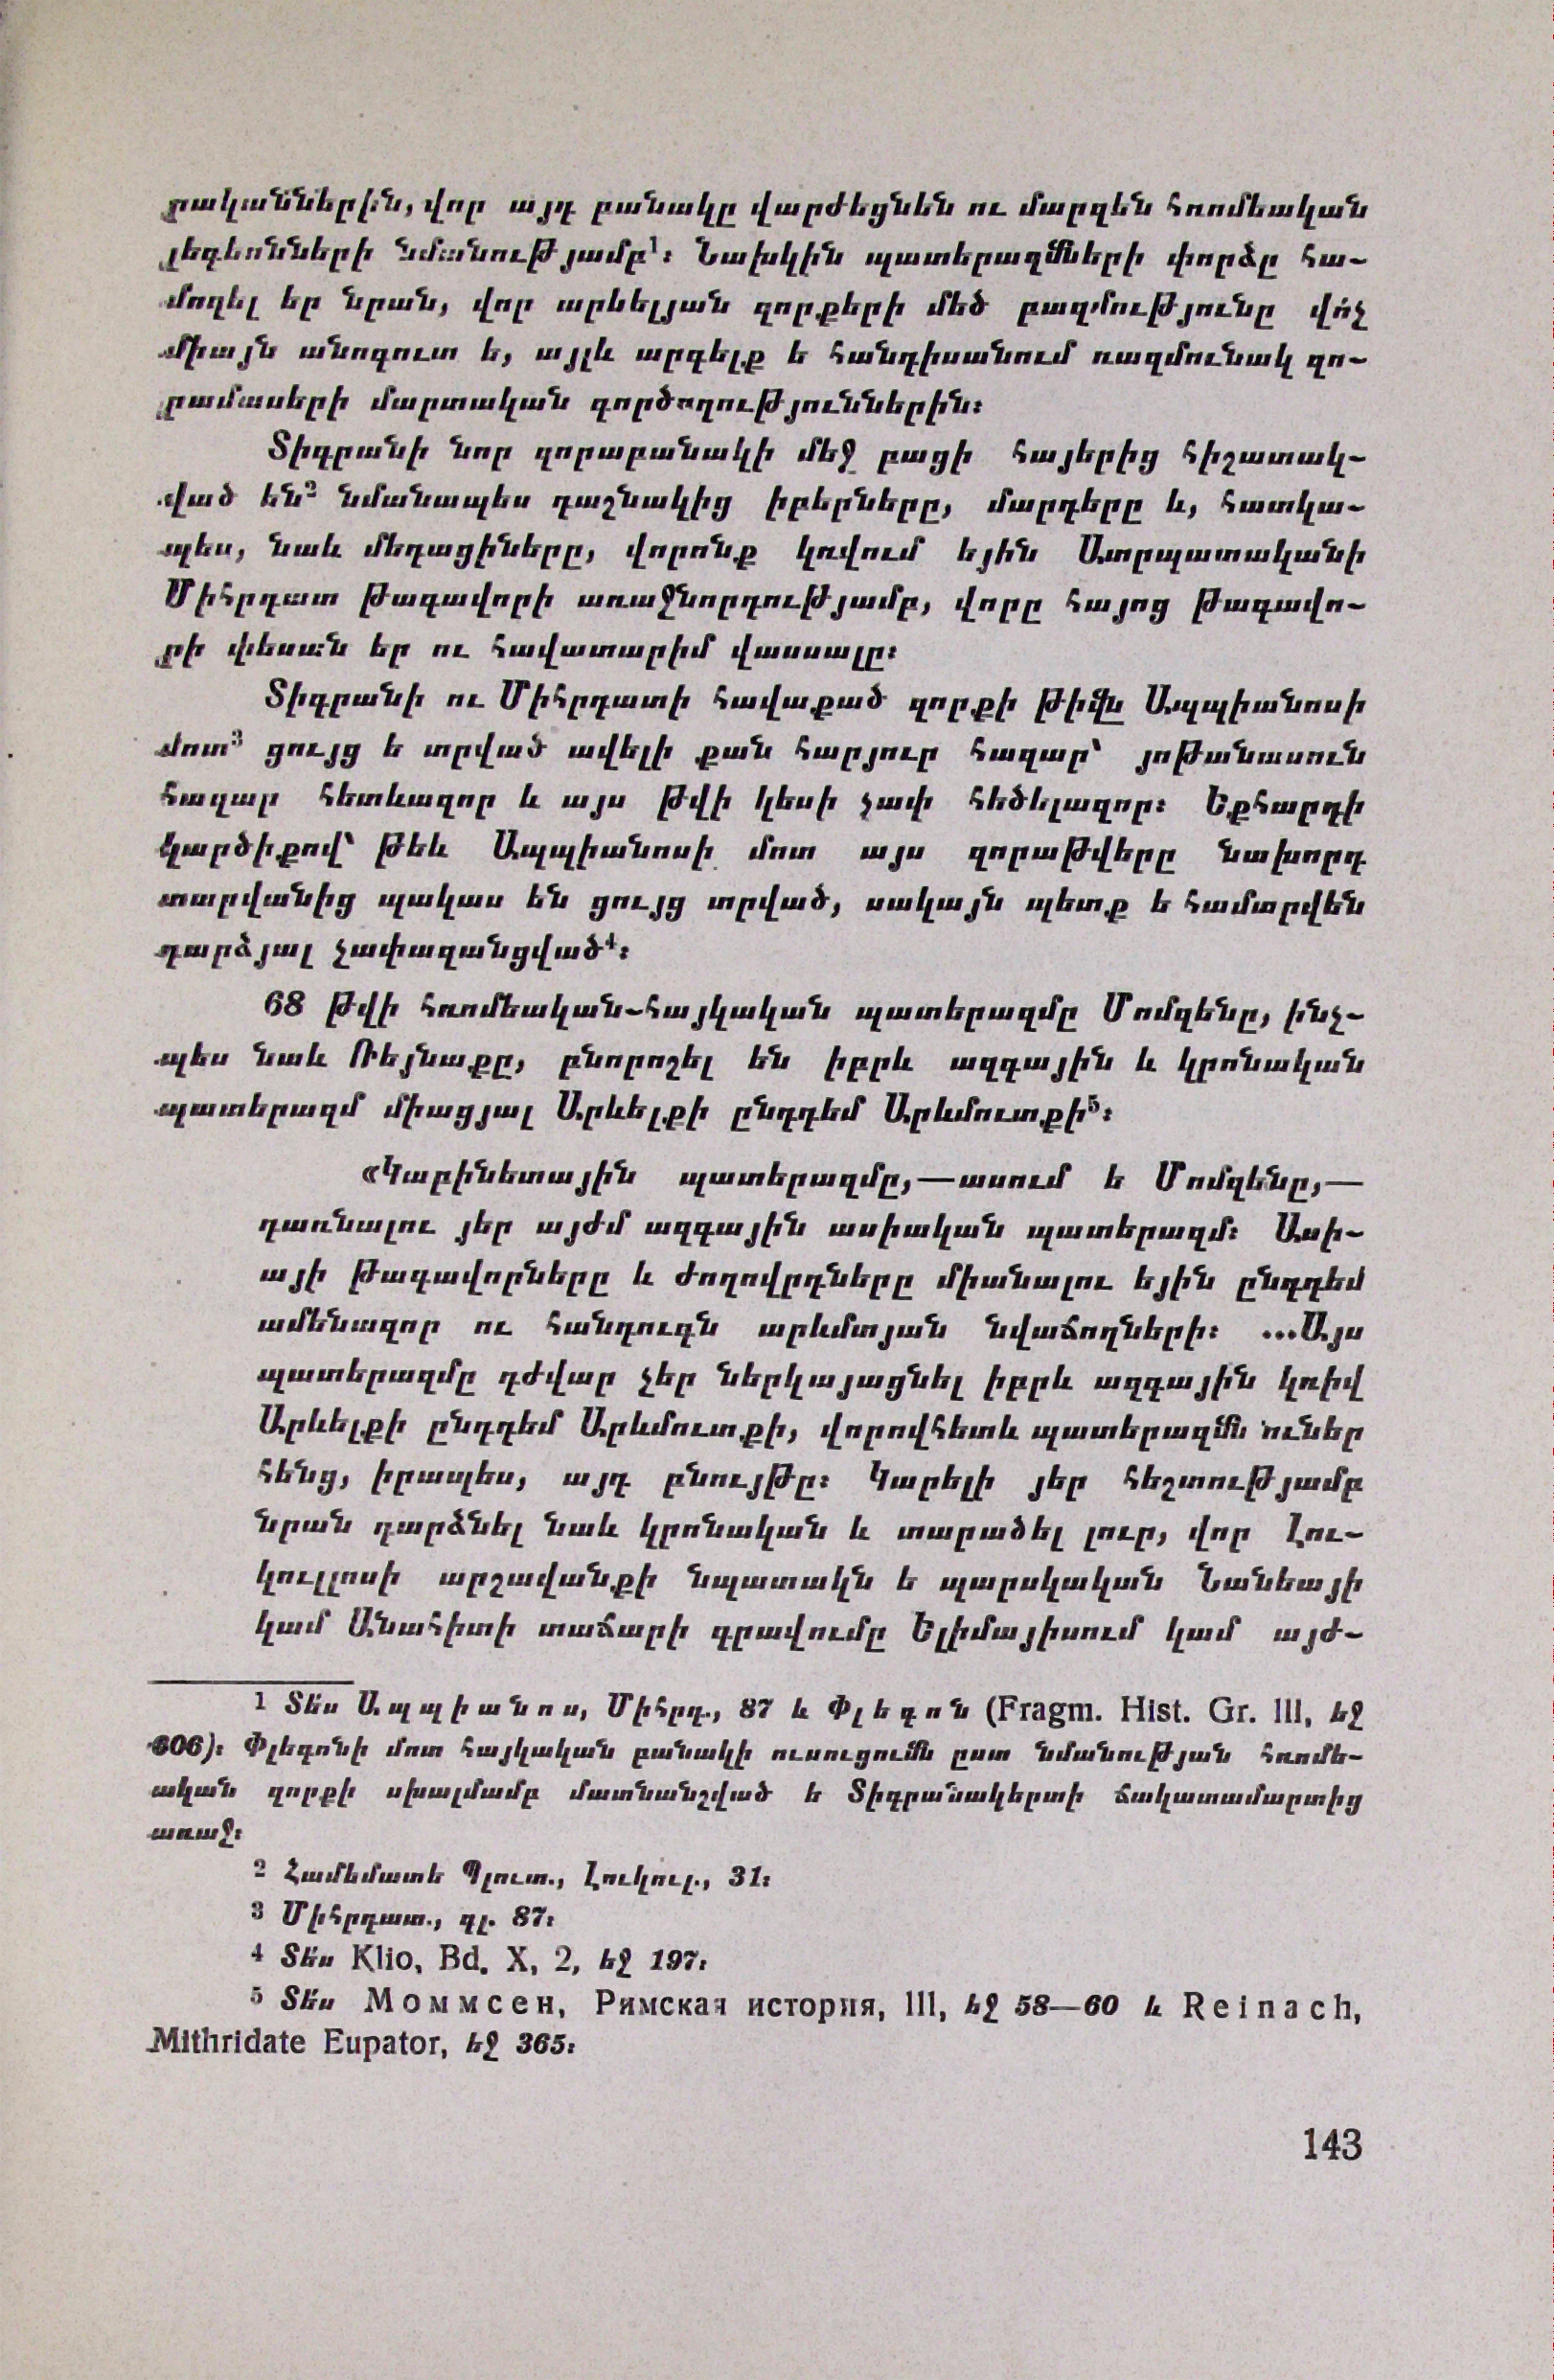 րականներին, վոր այդ բանակը վարժեցնեն ու մարզեն հռոմեական
լեգեոնների նմանությամբ¹։ Նախկին պատերազմների փորձը հա-
մոզել եր նրան, վոր արևելյան զորքերի մեծ բազմությունը վո՛չ
միայն անոգուտ ե, այլև արգելք ե հանդիսանում ռազմունակ զո-
րամասերի մարտական գործողություններին։
Տիգրանի նոր զորաբանակի մեջ բացի հայերից հիշատակ-
ված են² նմանապես դաշնակից իբերները, մարդերը և, հատկա-
պես, նաև մեդացիները, վորոնք կռվում եյին Ատրպատականի
Միհրդատ թագավորի առաջնորդությամբ, վորը հայոց թագավո-
րի փեսան եր ու հավատարիմ վասսալը։
Տիգրանի ու Միհրդատի հավաքած զորքի թիվը Ապպիանոսի
մոտ³ ցույց ե տրված ավելի քան հարյուր հազար՝ յոթանասուն
հազար հետևազոր և այս թվի կեսի չափ հեծելազոր։ Եքհարդի
կարծիքով՝ թեև Ապպիանոսի մոտ այս զորաթվերը նախորդ
տարվանից պակաս են ցույց տրված, սակայն պետք ե համարվեն
դարձյալ չափազանցված⁴։
68 թվի հռոմեական-հայկական պատերազմը Մոմզենը, ինչ-
պես նաև Ռեյնաքը, բնորոշել են իբրև ազգային և կրոնական
պատերազմ միացյալ Արևելքի ընդդեմ Արևմուտքի⁵։
«Կաբինետային պատերազմը,—ասում ե Մոմզենը,—
դառնալու յեր այժմ ազգային ասիական պատերազմ։ Ասի-
այի թագավորները և ժողովրդները միանալու եյին ընդդեմ
ամենազոր ու հանդուգն արևմտյան նվաճողների։ ...Այս
պատերազմը դժվար չեր ներկայացնել իբրև ազգային կռիվ
Արևելքի ընդդեմ Արևմուտքի, վորովհետև պատերազմն ուներ
հենց, իրապես, այդ բնույթը։ Կարելի յեր հեշտությամբ
նրան դարձնել նաև կրոնական և տարածել լուր, վոր Լու-
կուլլոսի արշավանքի նպատակն ե պարսկական Նանեայի
կամ Անահիտի տաճարի գրավումը Ելիմայիսում կամ այժ-
1 Տե՛ս Ապպիանոս, Միհրդ., 87 և Փլեգոն (Fragm. Hist. Gr. III, եջ
606)։ Փլեգոնի մոտ հայկական բանակի ուսուցումն ըստ նմանության հռոմե-
ական զորքի սխալմամբ մատնանշված ե Տիգրանակերտի ճակատամարտից
առաջ։
2 Համեմատե Պլուտ., Լուկուլ., 31։
3 Միհրդատ., գլ. 87։
4 Տե՛ս Klio, Bd. X, 2, եջ 197։
5 Տե՛ս Моммсен, Римская история, III, եջ 58—60 և Reinach,
Mithridate Eupator, եջ 365։
143